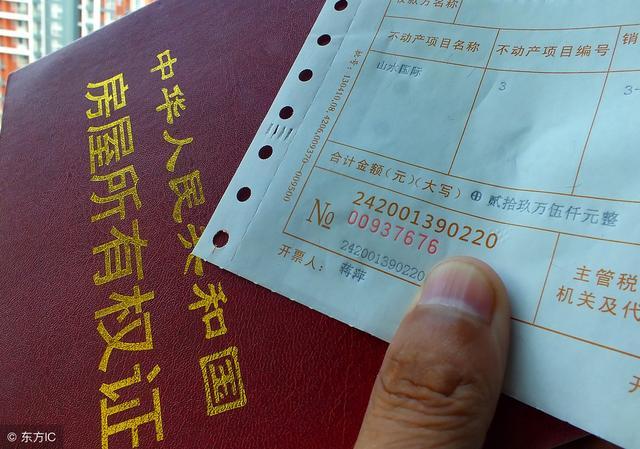 中华人民共和国
房屋所有权证
收款方名称
不动产项目名称 不动产项目编号 销
山水国际 3 3-
合计金额(元)(大写) ⊕ 贰拾玖万伍仟元整
№ 242001390220
00937676
242001390220
开票人: 蒋萍
主管税
机关及代
开
© 东方IC